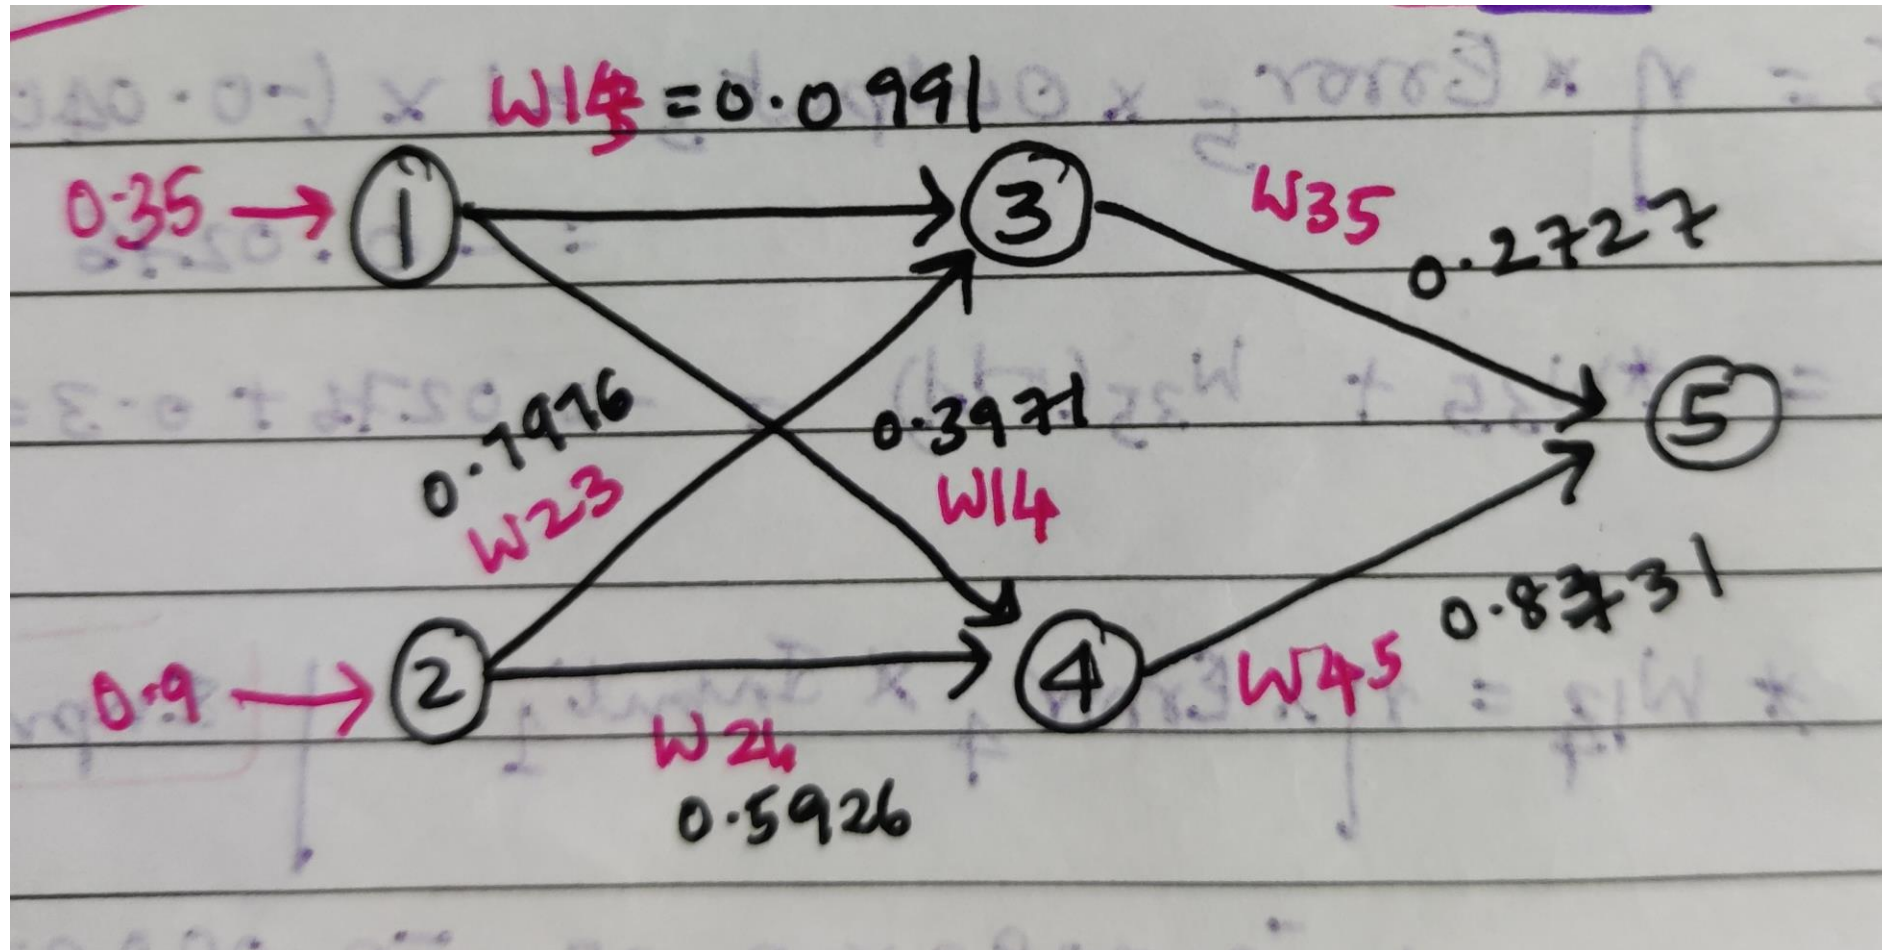 W13 = 0.0991
0.35 → 1
3
W35
0.2727
0.7976
W23
0.3971
W14
5
0.9 → 2
4
W45
0.8731
W24
0.5926